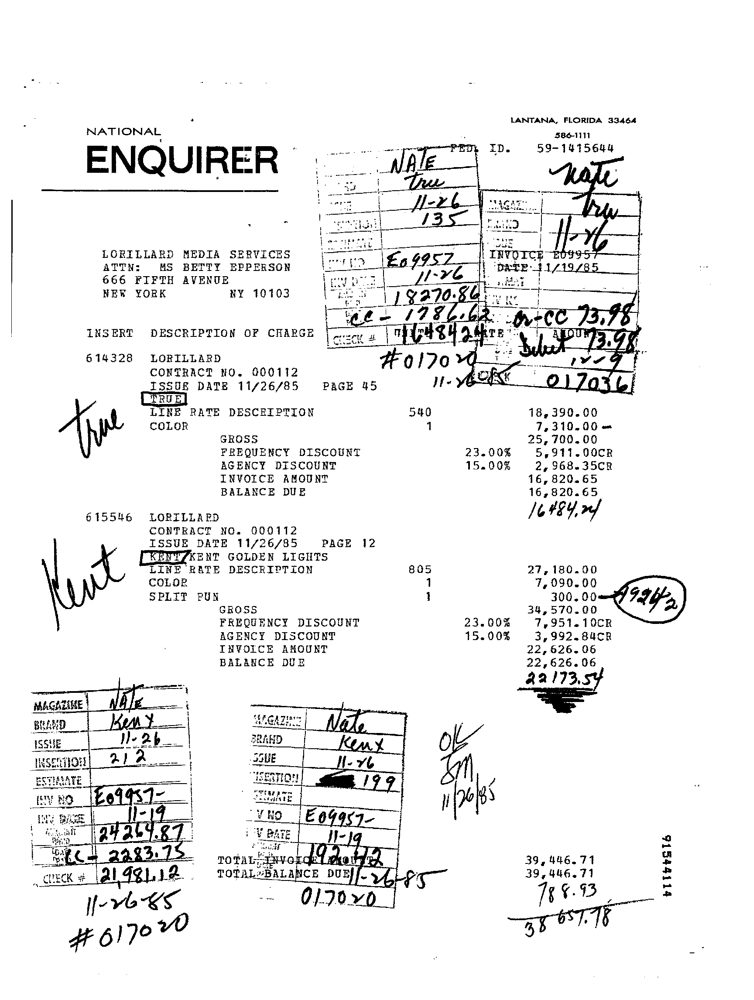 LANTANA, FLORIDA 33464
586-1111
FED. ID. 59-1415644
NATIONAL
ENQUIRER
NATE
True
11-26
135
E09957
11-26
18270.86
CC - 1786.62
CHECK # 16484.24
#017020
11-26
Nate
MAGAZINE
True
BRAND
11-26
INVOICE E09957
DATE 11/19/85
or-CC 73.98
Debit 73.98
12-9
017036
LORILLARD MEDIA SERVICES
ATTN: MS BETTY EPPERSON
666 FIFTH AVENUE
NEW YORK NY 10103
INSERT DESCRIPTION OF CHARGE
614328 LORILLARD
CONTRACT NO. 000112
ISSUE DATE 11/26/85 PAGE 45
TRUE
True
LINE RATE DESCRIPTION 540 18,390.00
COLOR 1 7,310.00 -
GROSS 25,700.00
FREQUENCY DISCOUNT 23.00% 5,911.00CR
AGENCY DISCOUNT 15.00% 2,968.35CR
INVOICE AMOUNT 16,820.65
BALANCE DUE 16,820.65
16484.24
615546 LORILLARD
CONTRACT NO. 000112
ISSUE DATE 11/26/85 PAGE 12
KENT/KENT GOLDEN LIGHTS
Kent
LINE RATE DESCRIPTION 805 27,180.00
COLOR 1 7,090.00
SPLIT RUN 1 300.00
GROSS 34,570.00
FREQUENCY DISCOUNT 23.00% 7,951.10CR
AGENCY DISCOUNT 15.00% 3,992.84CR
INVOICE AMOUNT 22,626.06
BALANCE DUE 22,626.06
22173.54
MAGAZINE NATE
BRAND Kent
ISSUE 11-26
INSERTION 212
ESTIMATE
INV NO E09957-
INV DATE 11-19
24264.87
CC - 2283.75
CHECK # 21,981.12
11-26-85
#017020
MAGAZINE Nate
BRAND Kent
ISSUE 11-26
INSERTION 199
ESTIMATE
V NO E09957-
V DATE 11-19
11-26-85
017020
OK
JM
11/26/85
TOTAL INVOICE AMOUNT 39,446.71
TOTAL BALANCE DUE 39,446.71
788.93
38657.78
91544114